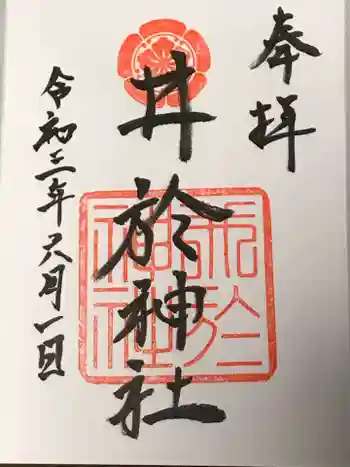 奉拝
井於神社
令和三年六月一日